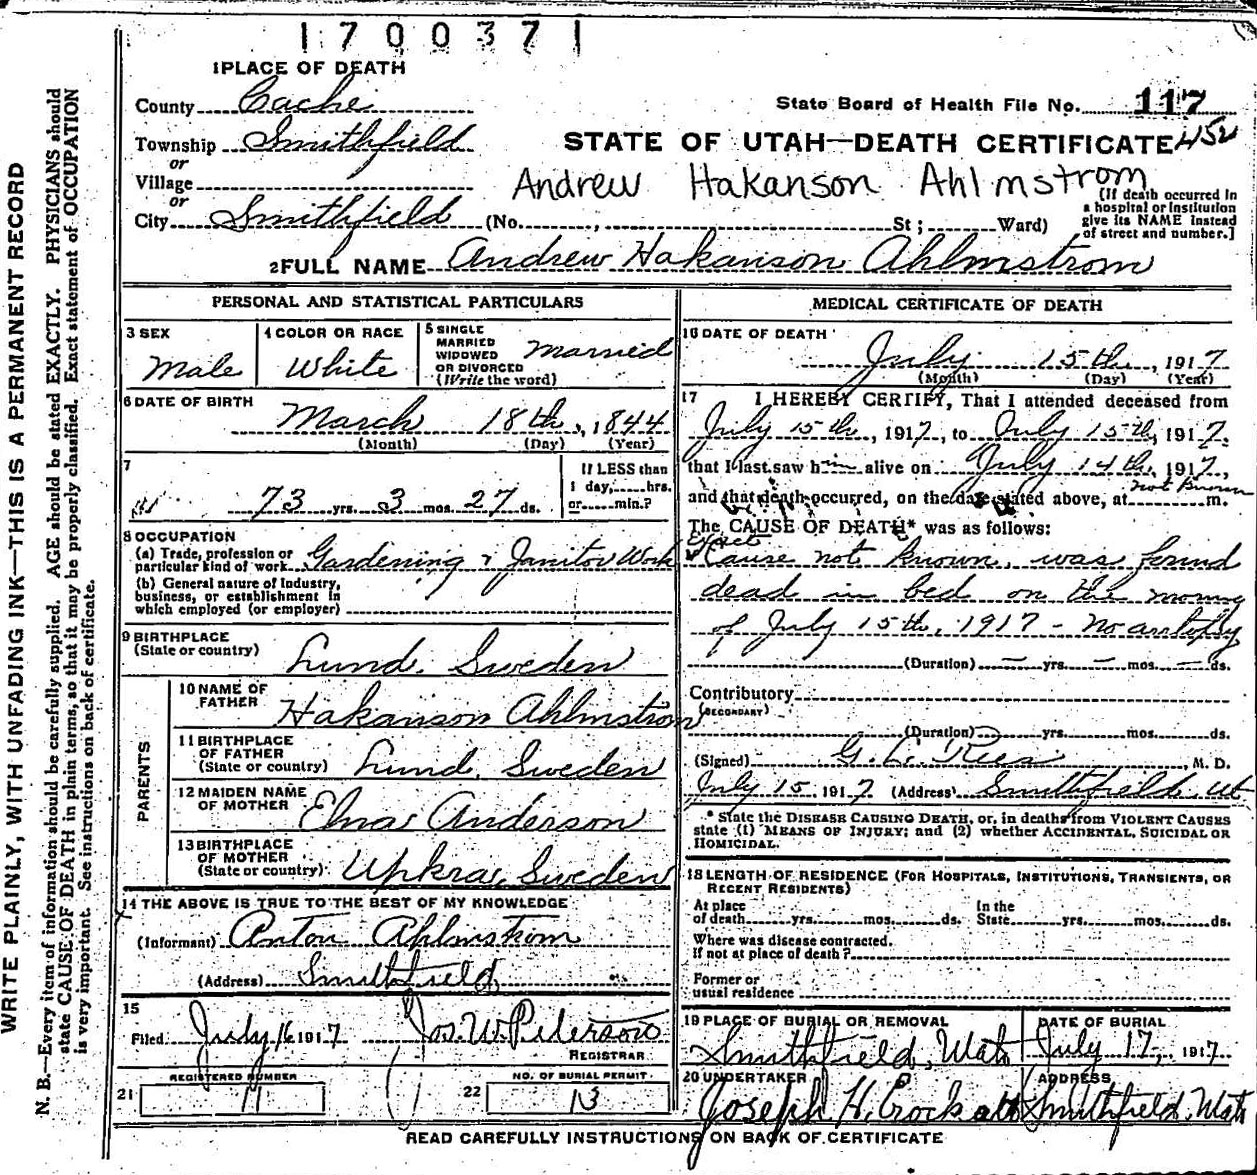 1700371
1 PLACE OF DEATH
County Cache
State Board of Health File No. 117
Township Smithfield
STATE OF UTAH—DEATH CERTIFICATE 452
or
Village
Andrew Hakanson Ahlmstrom
or
City Smithfield (No. , St; Ward)
(If death occurred in
a hospital or institution
give its NAME instead
of street and number.]
2 FULL NAME Andrew Hakanson Ahlmstrom
PERSONAL AND STATISTICAL PARTICULARS
3 SEX
Male
4 COLOR OR RACE
White
5 SINGLE
MARRIED
WIDOWED
OR DIVORCED
(Write the word)
Married
6 DATE OF BIRTH
March 18th, 1844
(Month) (Day) (Year)
7
73 yrs. 3 mos. 27 ds.
If LESS than
1 day,.....hrs.
or.....min.?
8 OCCUPATION
(a) Trade, profession or
particular kind of work Gardening & Janitor Work
(b) General nature of Industry,
business, or establishment in
which employed (or employer)
9 BIRTHPLACE
(State or country)
Lund, Sweden
PARENTS
10 NAME OF
FATHER
Hakanson Ahlmstrom
11 BIRTHPLACE
OF FATHER
(State or country) Lund, Sweden
12 MAIDEN NAME
OF MOTHER Elna Anderson
13 BIRTHPLACE
OF MOTHER
(State or country) Upkra, Sweden
14 THE ABOVE IS TRUE TO THE BEST OF MY KNOWLEDGE
(Informant) Anton Ahlmstrom
(Address) Smithfield
15
Filed July 16 1917 Jos. W. Peterson
REGISTRAR
REGISTERED NUMBER
21 11
NO. OF BURIAL PERMIT
22 13
MEDICAL CERTIFICATE OF DEATH
16 DATE OF DEATH
July 15th, 1917
(Month) (Day) (Year)
17 I HEREBY CERTIFY, That I attended deceased from
July 15th, 1917, to July 15th, 1917,
that I last saw him alive on July 14th, 1917,
and that death occurred, on the date stated above, at not known m.
The CAUSE OF DEATH* was as follows:
Exact
Cause not known, was found
dead in bed on the morning
of July 15th, 1917 - No autopsy
(Duration) — yrs. — mos. — ds.
Contributory
(SECONDARY)
(Duration) yrs. mos. ds.
(Signed) G. L. Rees, M. D.
July 15, 1917 (Address) Smithfield, Ut
* State the DISEASE CAUSING DEATH, or, in deaths from VIOLENT CAUSES
state (1) MEANS OF INJURY; and (2) whether ACCIDENTAL, SUICIDAL OR
HOMICIDAL.
18 LENGTH OF RESIDENCE (FOR HOSPITALS, INSTITUTIONS, TRANSIENTS, OR
RECENT RESIDENTS)
At place In the
of death yrs. mos. ds. State yrs. mos. ds.
Where was disease contracted.
If not at place of death?
Former or
usual residence
19 PLACE OF BURIAL OR REMOVAL
Smithfield, Utah
DATE OF BURIAL
July 17, 1917
20 UNDERTAKER
Joseph H. Crockatt
ADDRESS
Smithfield, Utah
READ CAREFULLY INSTRUCTIONS ON BACK OF CERTIFICATE
WRITE PLAINLY, WITH UNFADING INK—THIS IS A PERMANENT RECORD
N. B.—Every item of information should be carefully supplied. AGE should be stated EXACTLY. PHYSICIANS should
state CAUSE OF DEATH in plain terms, so that it may be properly classified. Exact statement of OCCUPATION
is very important. See instructions on back of certificate.